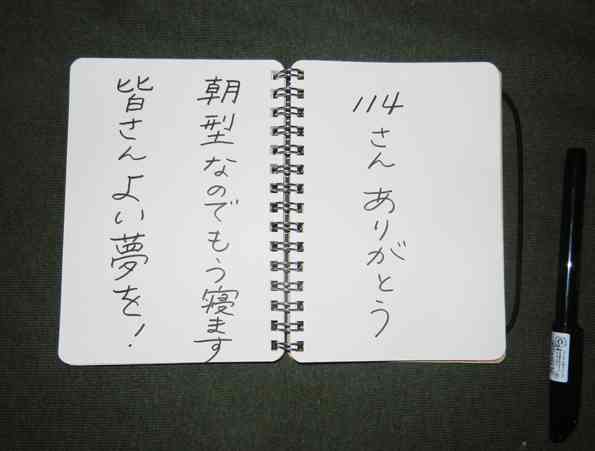 114さん ありがとう
朝型なのでもう寝ます
皆さん よい夢を!